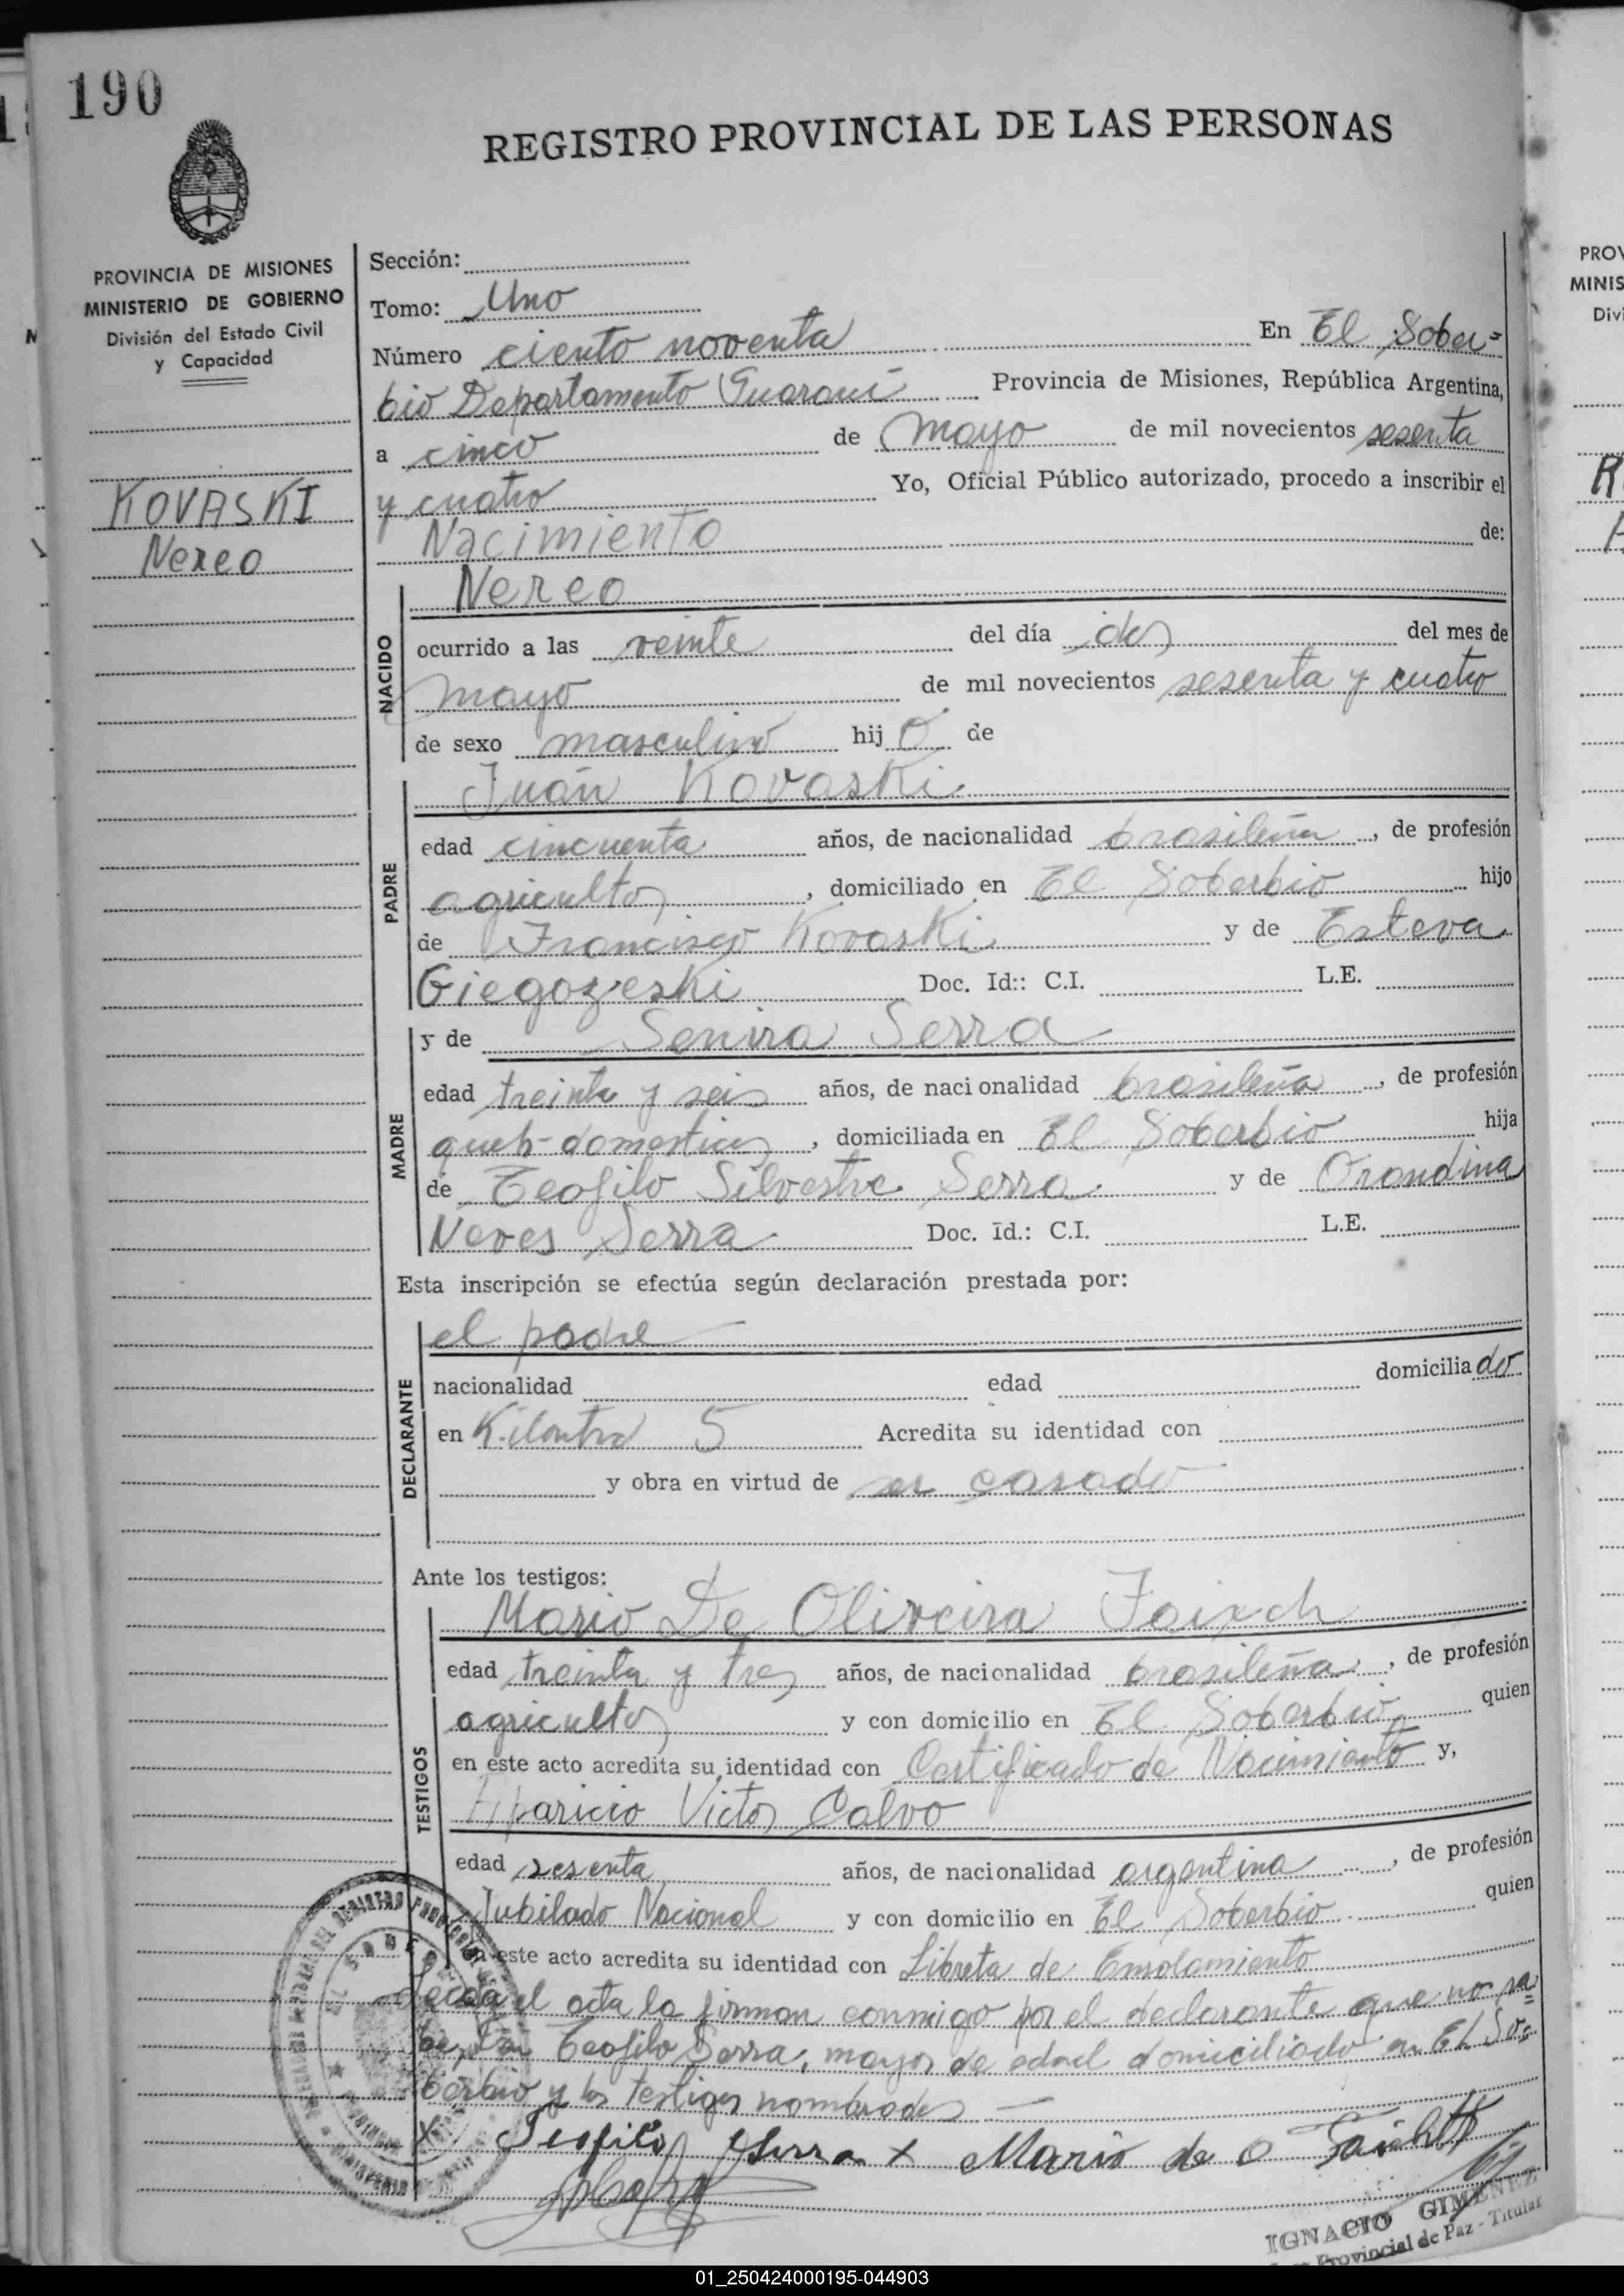 190
REGISTRO PROVINCIAL DE LAS PERSONAS
PROVINCIA DE MISIONES
MINISTERIO DE GOBIERNO
División del Estado Civil
y Capacidad
KOVASKI
Nereo
Sección:
Tomo: Uno
Número ciento noventa En El Sober=
bio Departamento Guaraní Provincia de Misiones, República Argentina,
a cinco de mayo de mil novecientos sesenta
y cuatro Yo, Oficial Público autorizado, procedo a inscribir el
Nacimiento de:
NACIDO
Nereo
ocurrido a las veinte del día dos del mes de
mayo de mil novecientos sesenta y cuatro
de sexo masculino hijo de
PADRE
Juan Kovaski
edad cincuenta años, de nacionalidad brasileña, de profesión
agricultor, domiciliado en El Soberbio hijo
de Francisco Kovaski y de Esteva
Giegozeski Doc. Id:: C.I. L.E.
MADRE
y de Senira Serra
edad treinta y seis años, de nacionalidad brasileña, de profesión
queh-domesticos, domiciliada en El Soberbio hija
de Teofilo Silvestre Serra y de Orondina
Neves Serra Doc. Id.: C.I. L.E.
Esta inscripción se efectúa según declaración prestada por:
DECLARANTE
el padre
nacionalidad edad domiciliado
en 5 Acredita su identidad con
y obra en virtud de ser casado
Ante los testigos:
TESTIGOS
Mario De Oliveira
edad treinta y tres años, de nacionalidad brasileña, de profesión
agricultor y con domicilio en El Soberbio, quien
en este acto acredita su identidad con Certificado de Nacimiento y,
Aparicio Victor Calvo
edad sesenta años, de nacionalidad argentina, de profesión
Jubilado Nacional y con domicilio en El Soberbio quien
en este acto acredita su identidad con Libreta de Enrolamiento
el acta la firman conmigo por el declarante que no sa=
be, Teofilo Serra, mayor de edad domiciliado en El So=
berbio y los testigos nombrados
x Teofilo Serra x Mario de O
IGNACIO GIMENEZ
Provincial de Paz - Titular
PROV
MINIS
Divi
01_250424000195-044903